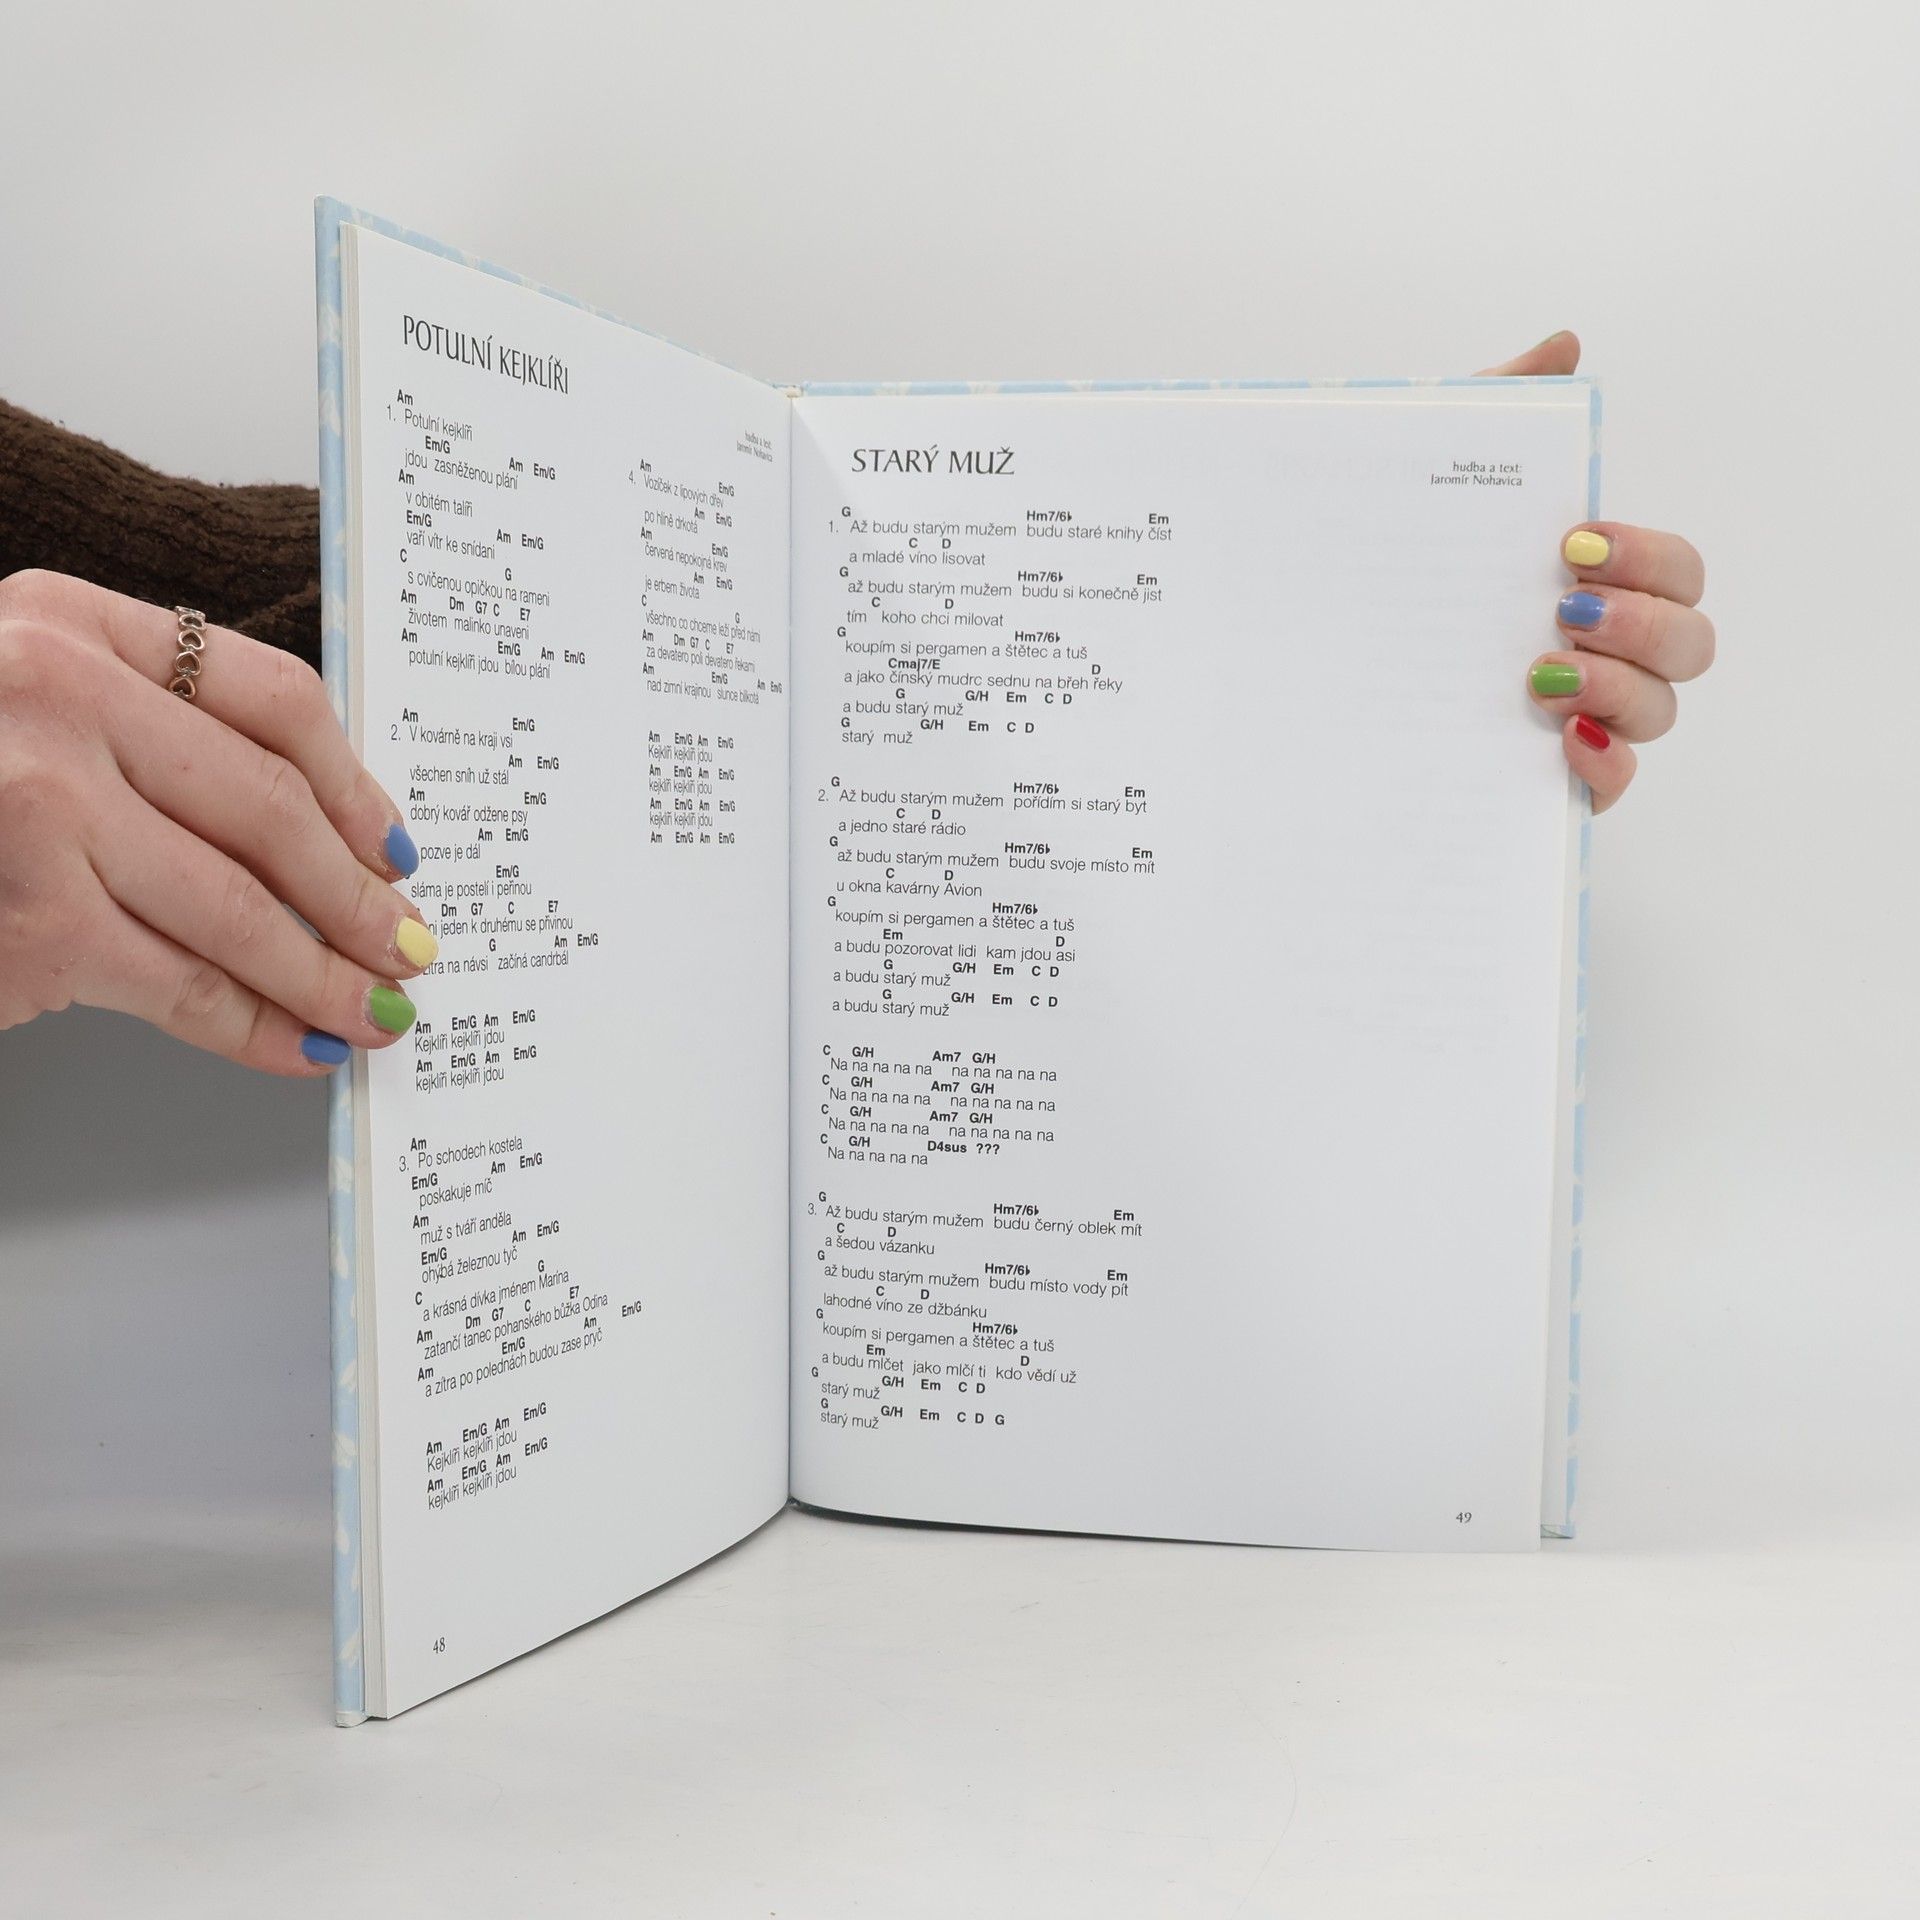 POTULNÍ KEJKLÍŘI
hudba a text:
Jaromír Nohavica
Am
1. Potulní kejklíři
Em/G Am Em/G
jdou zasněženou plání
Am
v obitém talíři
Em/G Am Em/G
vaří vítr ke snídani
C G
s cvičenou opičkou na rameni
Am Dm G7 C E7
životem malinko unaveni
Am Em/G Am Em/G
potulní kejklíři jdou bílou plání
Am Em/G
2. V kovárně na kraji vsi
Am Em/G
všechen sníh už stál
Am Em/G
dobrý kovář odžene psy
Am Em/G
pozve je dál
Em/G
sláma je postelí i peřinou
Dm G7 C E7
jeden k druhému se přivinou
G Am Em/G
na návsi začíná candrbál
Am Em/G Am Em/G
Kejklíři kejklíři jdou
Am Em/G Am Em/G
kejklíři kejklíři jdou
Am
3. Po schodech kostela
Em/G Am Em/G
poskakuje míč
Am
muž s tváří anděla
Em/G Am Em/G
ohýbá železnou tyč
C G
a krásná dívka jménem Marína
Am Dm G7 C E7
zatančí tanec pohanského bůžka Odina
Am Em/G Am Em/G
a zítra po polednách budou zase pryč
Am Em/G Am Em/G
Kejklíři kejklíři jdou
Am Em/G Am Em/G
kejklíři kejklíři jdou
Am Em/G
4. Vozíček z lipových dřev
Am Em/G
po hlíně drkotá
Am Em/G
červená nepokojná krev
Am Em/G
je erbem života
C G
všechno co chceme leží před námi
Am Dm G7 C E7
za devatero poli devatero řekami
Am Em/G Am Em/G
nad zimní krajinou slunce blikotá
Am Em/G Am Em/G
Kejklíři kejklíři jdou
Am Em/G Am Em/G
kejklíři kejklíři jdou
Am Em/G Am Em/G
kejklíři kejklíři jdou
Am Em/G Am Em/G
48
STARÝ MUŽ
hudba a text:
Jaromír Nohavica
G Hm7/6♭ Em
1. Až budu starým mužem budu staré knihy číst
C D
a mladé víno lisovat
G Hm7/6♭ Em
až budu starým mužem budu si konečně jist
C D
tím koho chci milovat
G Hm7/6♭
koupím si pergamen a štětec a tuš
Cmaj7/E D
a jako čínský mudrc sednu na břeh řeky
G G/H Em C D
a budu starý muž
G G/H Em C D
starý muž
G Hm7/6♭ Em
2. Až budu starým mužem pořídím si starý byt
C D
a jedno staré rádio
G Hm7/6♭ Em
až budu starým mužem budu svoje místo mít
C D
u okna kavárny Avion
G Hm7/6♭
koupím si pergamen a štětec a tuš
Em D
a budu pozorovat lidi kam jdou asi
G G/H Em C D
a budu starý muž
G G/H Em C D
a budu starý muž
C G/H Am7 G/H
Na na na na na na na na na na
C G/H Am7 G/H
Na na na na na na na na na na
C G/H Am7 G/H
Na na na na na na na na na na
C G/H D4sus ???
Na na na na na
G Hm7/6♭ Em
3. Až budu starým mužem budu černý oblek mít
C D
a šedou vázanku
G Hm7/6♭ Em
až budu starým mužem budu místo vody pít
C D
lahodné víno ze džbánku
G Hm7/6♭
koupím si pergamen a štětec a tuš
Em D
a budu mlčet jako mlčí ti kdo vědí už
G G/H Em C D
starý muž
G G/H Em C D G
starý muž
49